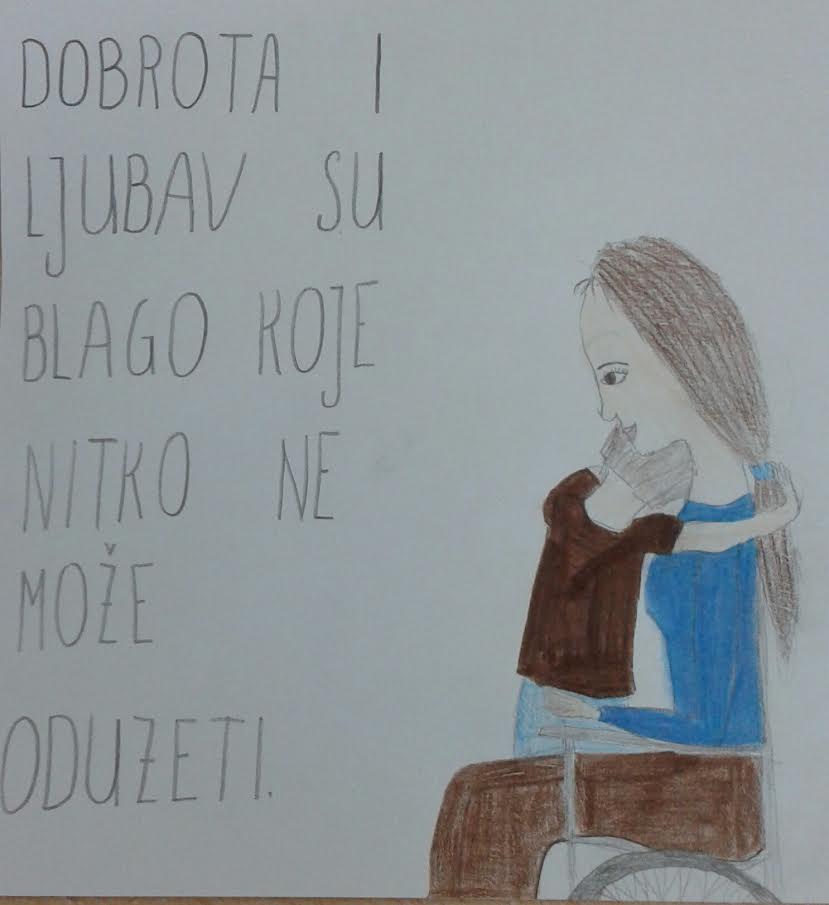 DOBROTA I
LJUBAV SU
BLAGO KOJE
NITKO NE
MOŽE
ODUZETI.